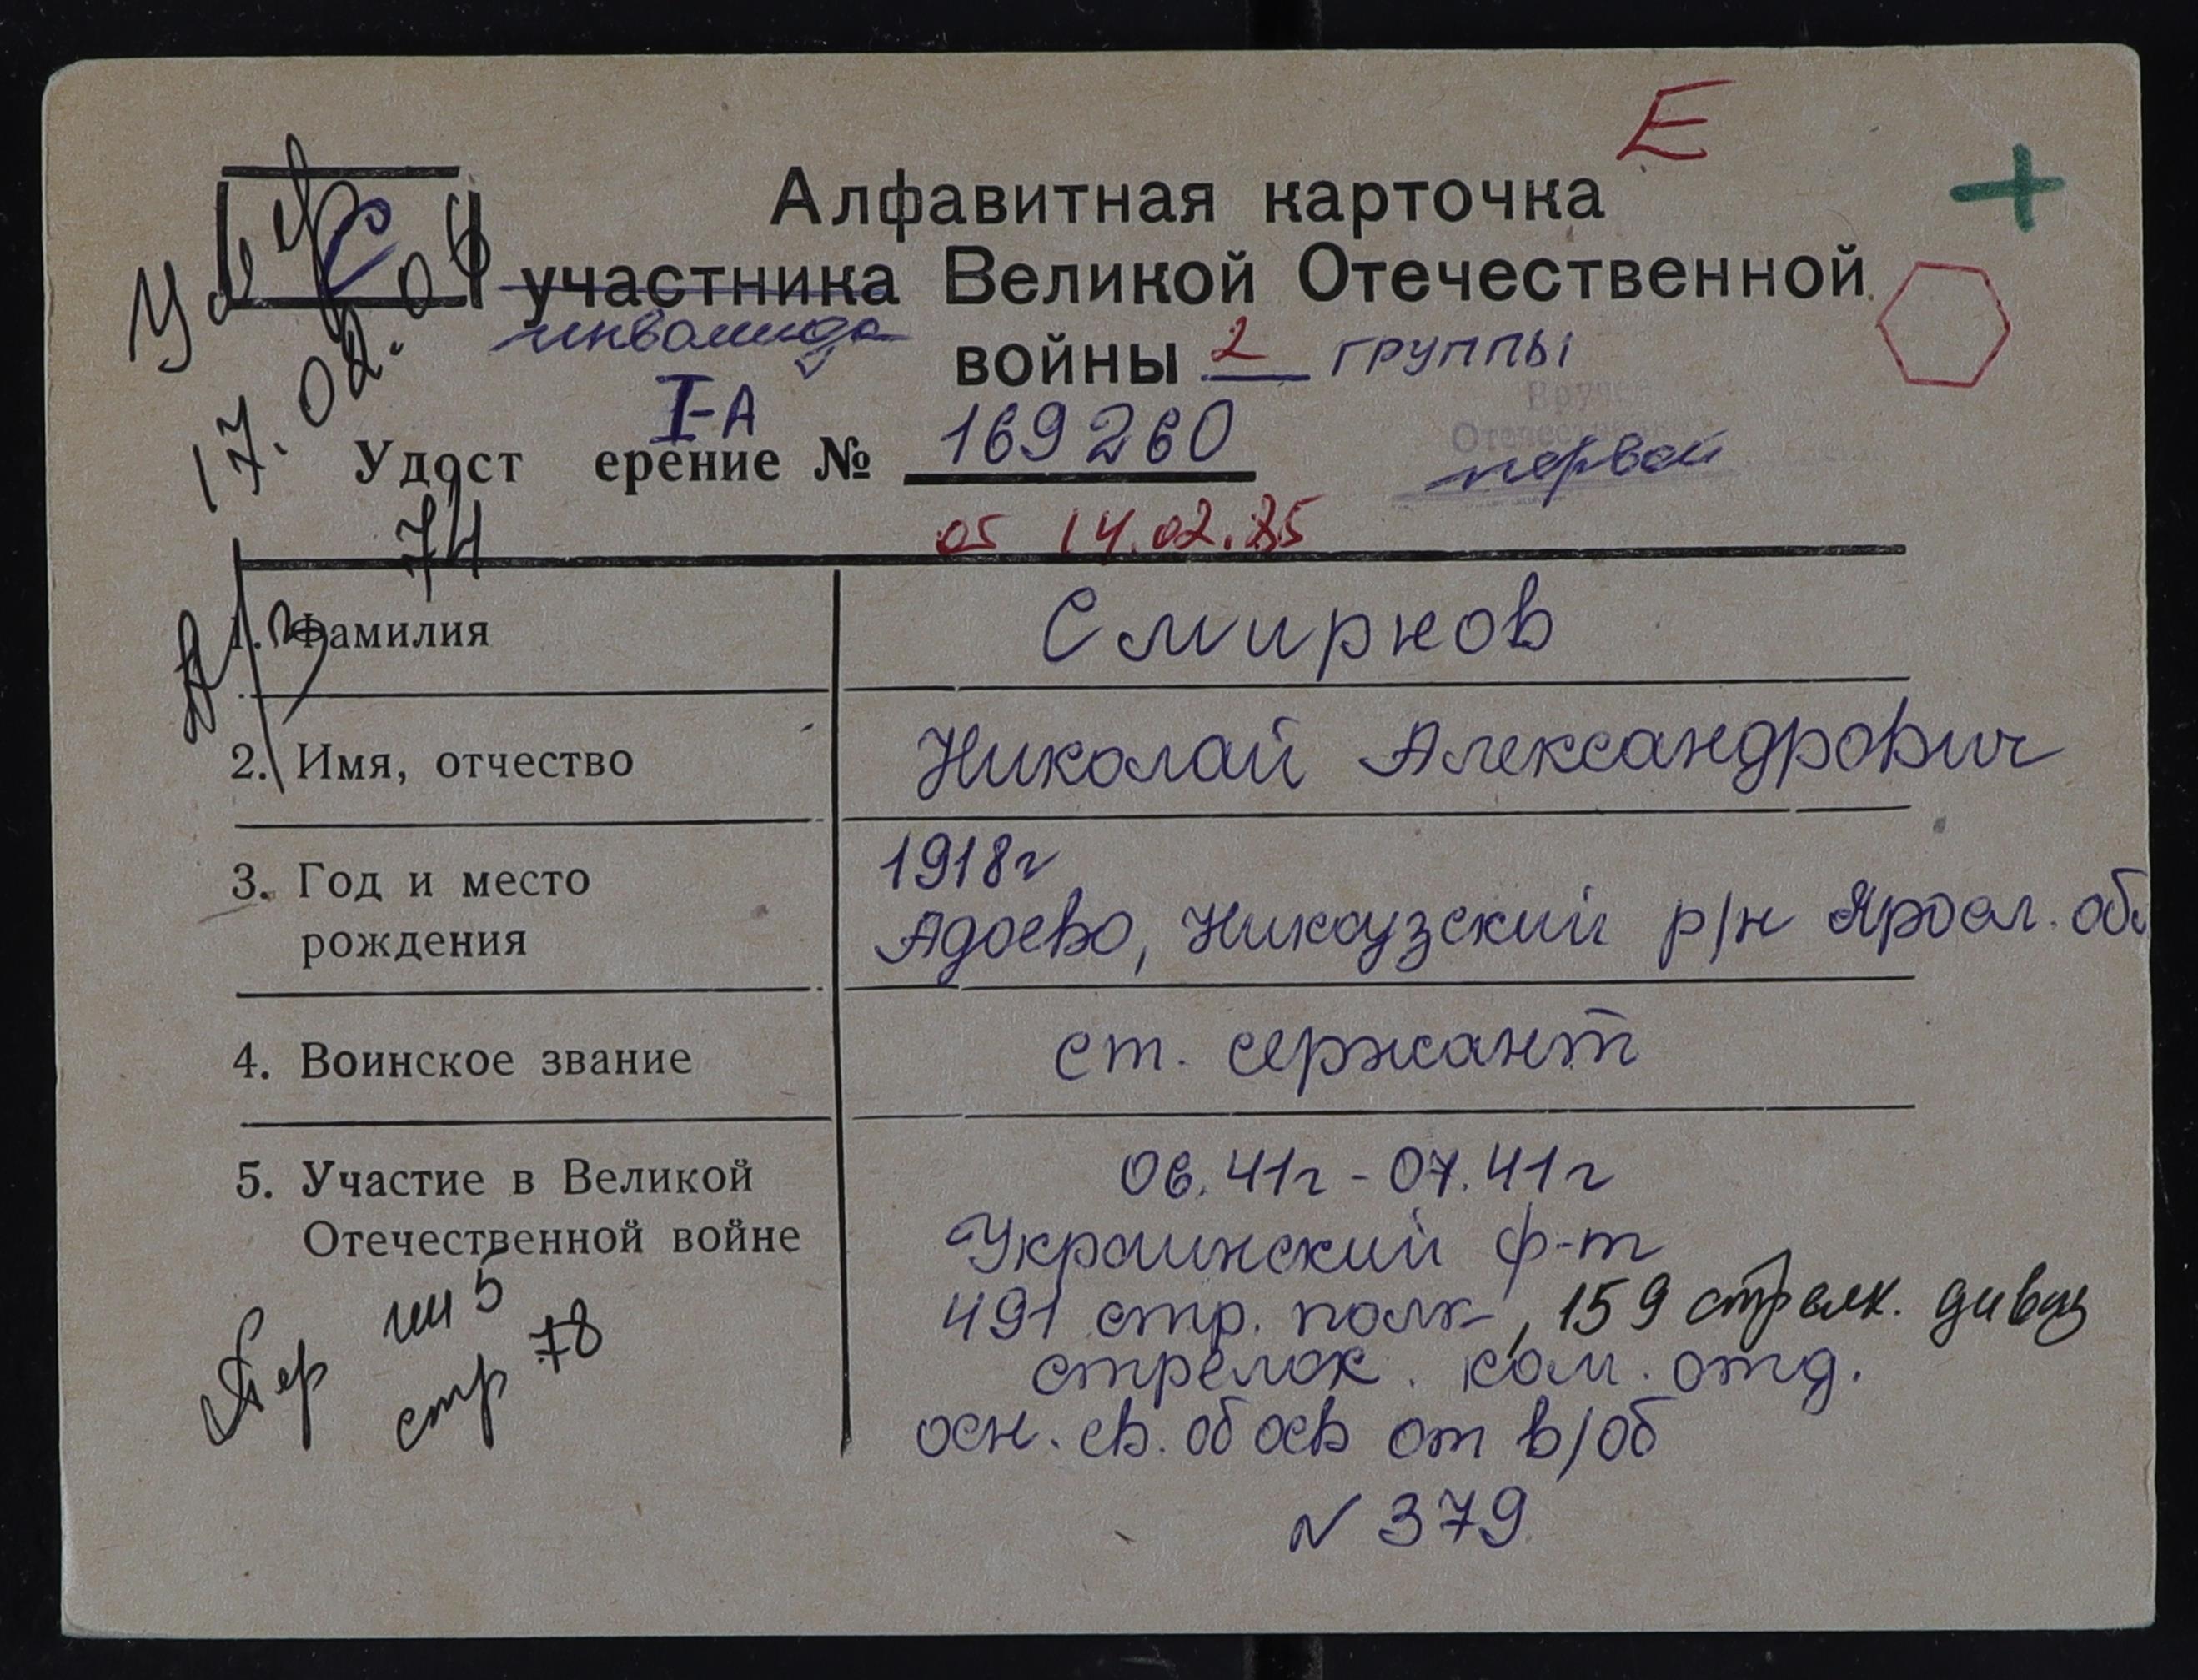 Е
Алфавитная карточка
участника Великой Отечественной
инвалида
войны 2 группы
умер
С
17.02.04
I-А
Удостерение № 169260
первой
от 14.02.85
74
1. Фамилия Смирнов
2. Имя, отчество Николай Александрович
3. Год и место 1918г
рождения Адоево, Никоузский р/н Яросл. об
4. Воинское звание ст. сержант
5. Участие в Великой 06.41г - 07.41г
Отечественной войне Украинский ф-т
491 стр. полк, 159 стрелк. дивиз
стрелок. ком. отд.
осн. св. об осв от в/об
N 379
Пер
стр 78